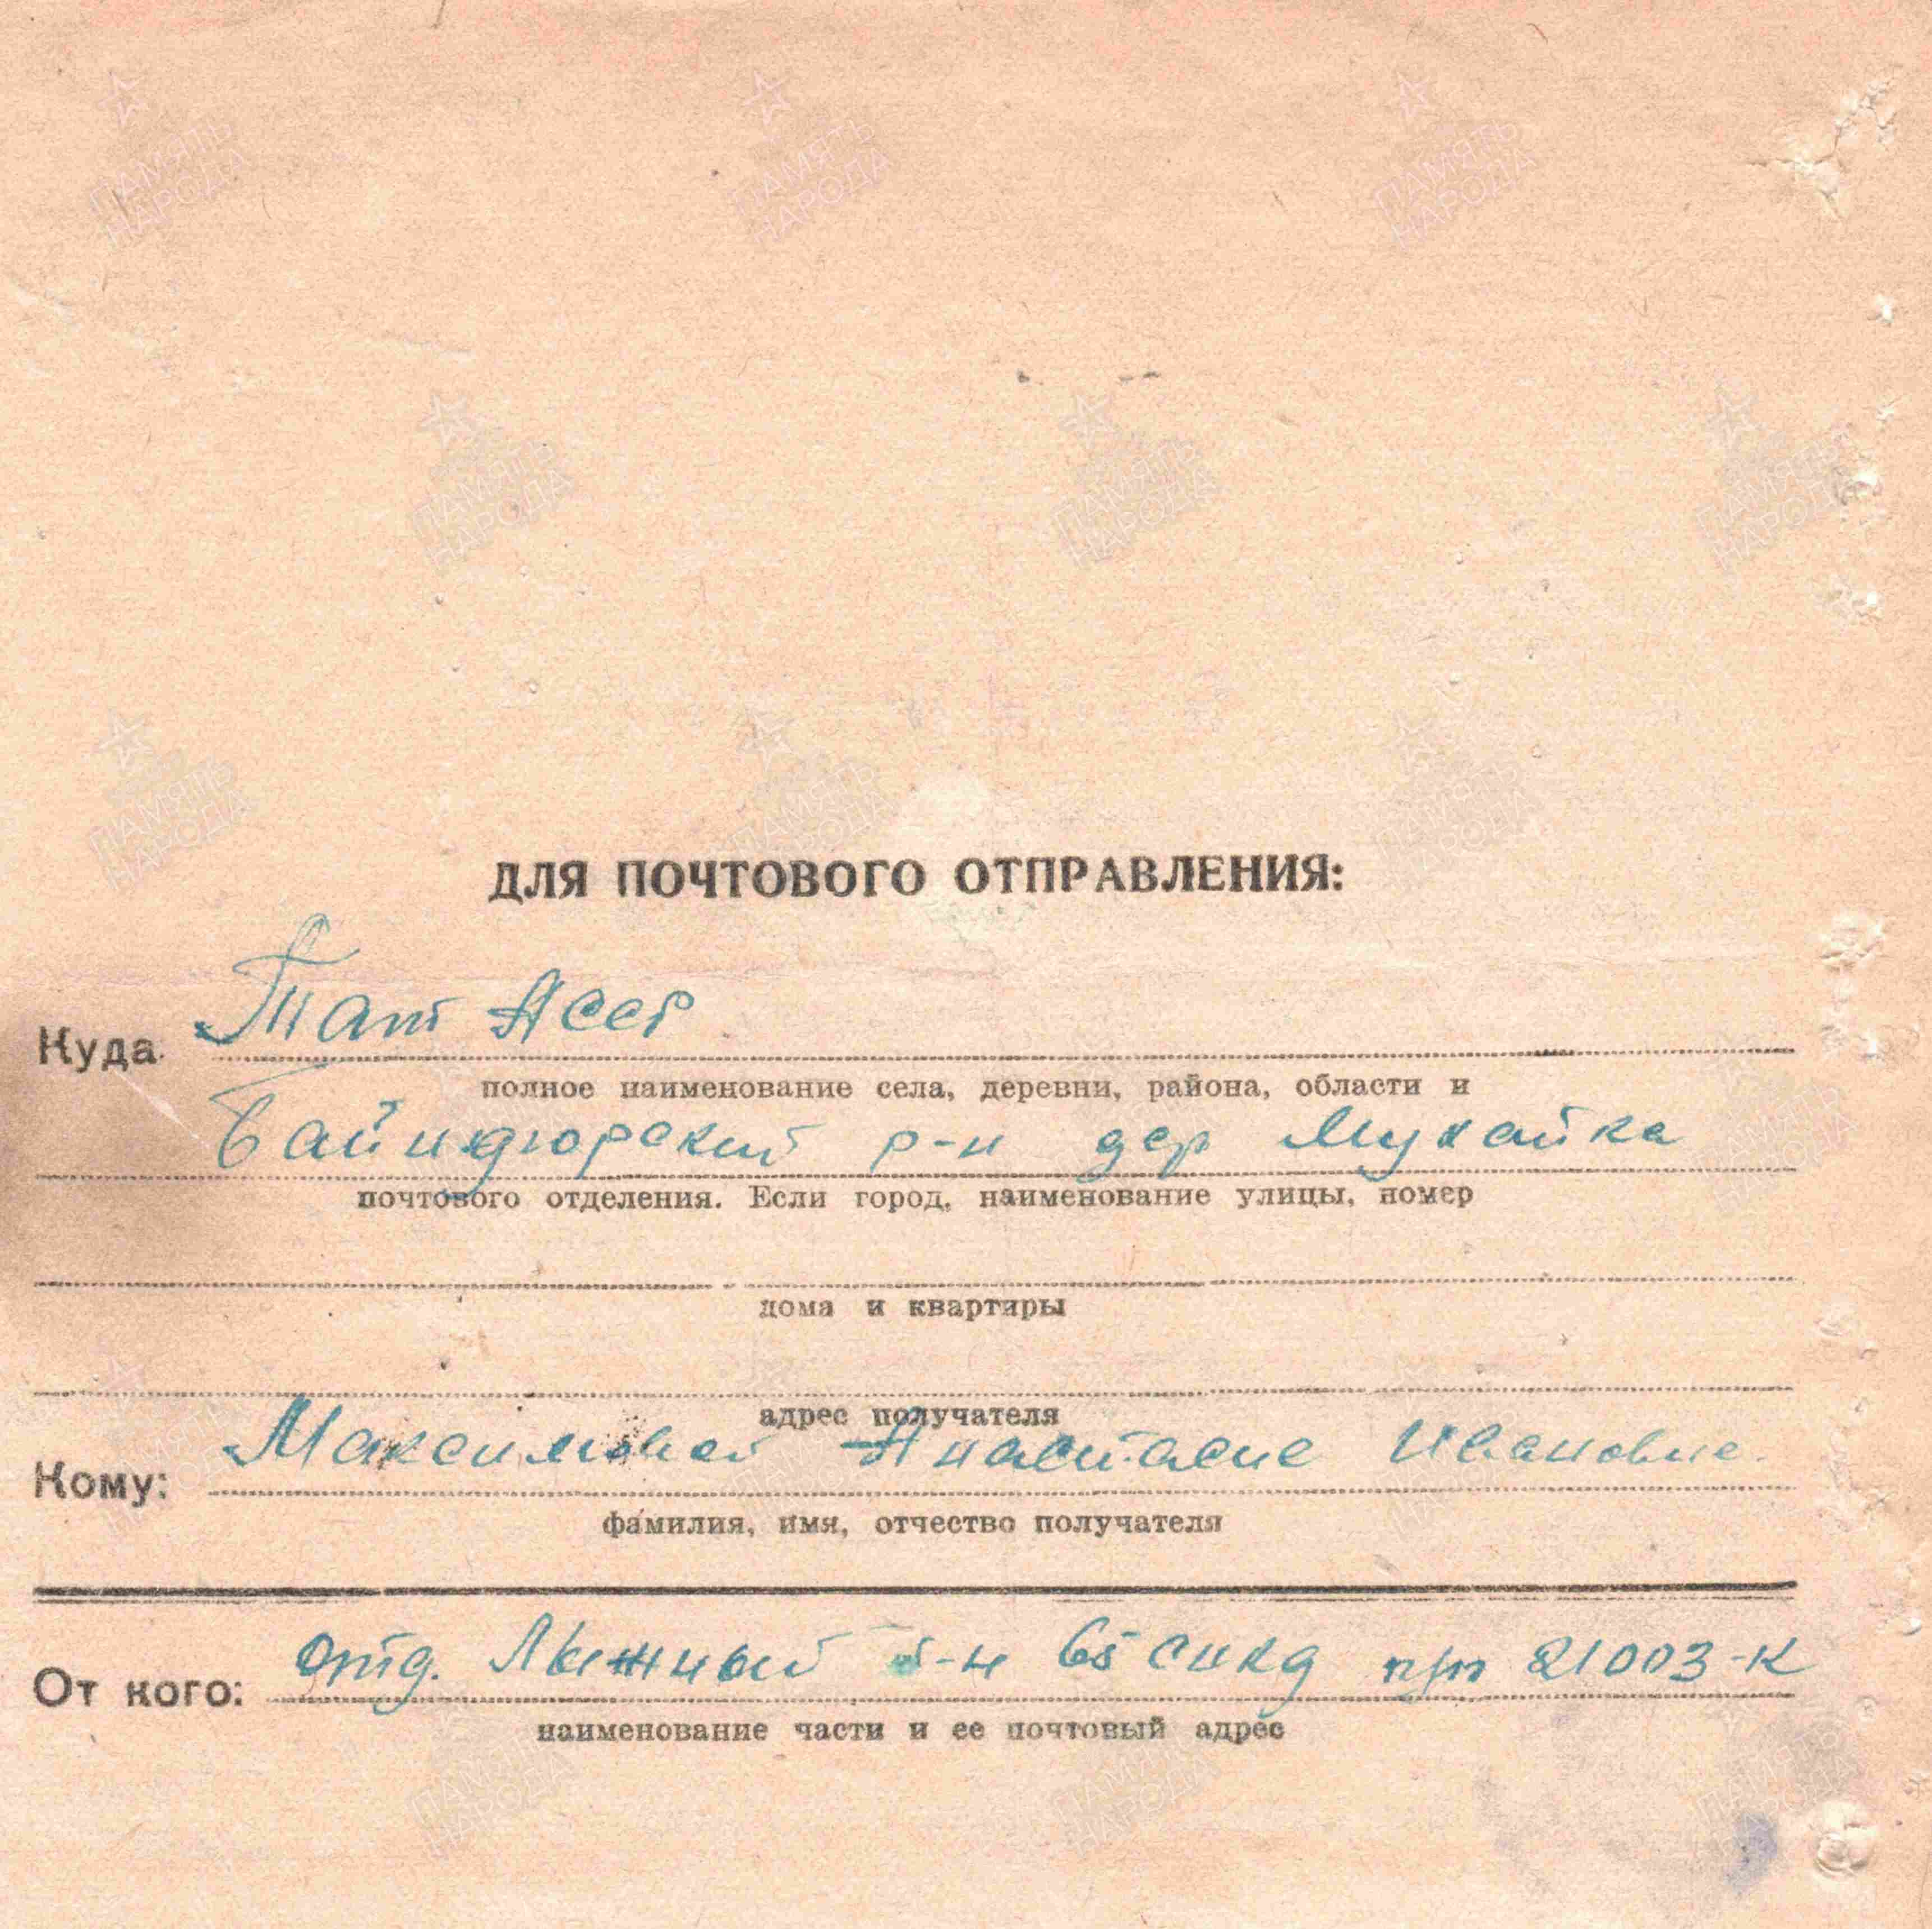 ДЛЯ ПОЧТОВОГО ОТПРАВЛЕНИЯ:
Куда Тат Асср
полное наименование села, деревни, района, области и
Байндюрский р-н дер Мукайка
почтового отделения. Если город, наименование улицы, номер
дома и квартиры
адрес получателя
Кому: Максимовой Анастасие Ивановне.
фамилия, имя, отчество получателя
От кого: отд. Лыжный б-н 65 сикд п/п 21003-К
наименование части и ее почтовый адрес
ПАМЯТЬ НАРОДА